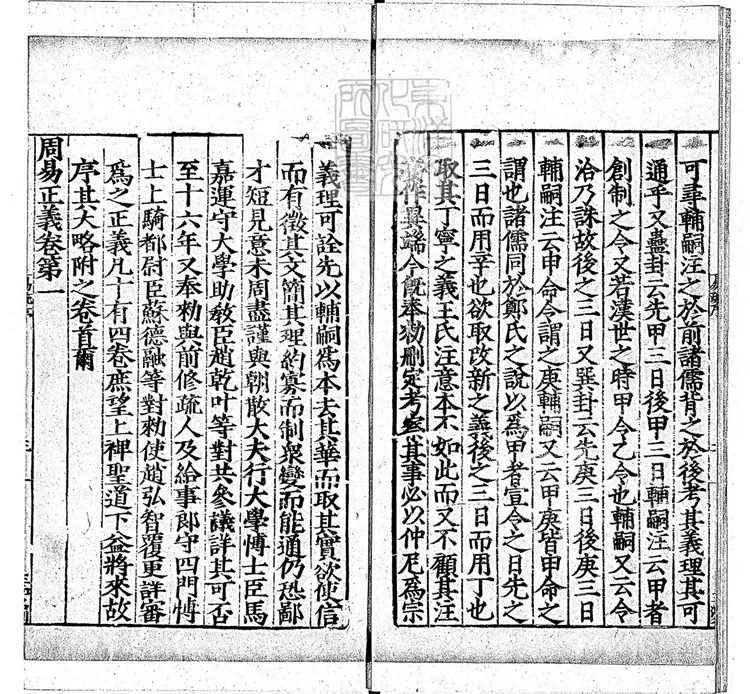 可尋輔嗣注之於前諸儒背之於後考其義理其可
通乎又蠱卦云先甲三日後甲三日輔嗣注云甲者
創制之令又若漢世之時甲令乙令也輔嗣又云令
洽乃誅故後之三日又巽卦云先庚三日後庚三日
輔嗣注云申命令謂之庚輔嗣又云甲庚皆申命之
謂也諸儒同於鄭氏之說以爲甲者宣令之日先之
三日而用辛也欲取改新之義後之三日而用丁也
取其丁寧之義王氏注意本不如此而又不顧其注
作異端今既奉勑刪定考察其事必以仲尼爲宗
義理可詮先以輔嗣爲本去其華而取其實欲使信
而有徵其文簡其理約寡而制衆變而能通仍恐鄙
才短見意未周盡謹與朝散大夫行大學博士臣馬
嘉運守大學助敎臣趙乾叶等對共參議詳其可否
至十六年又奉勑與前修疏人及給事郎守四門博
士上騎都尉臣蘇德融等對勑使趙弘智覆更詳審
爲之正義凡十有四卷庶望上裨聖道下益將來故
序其大略附之卷首爾
周易正義卷第一